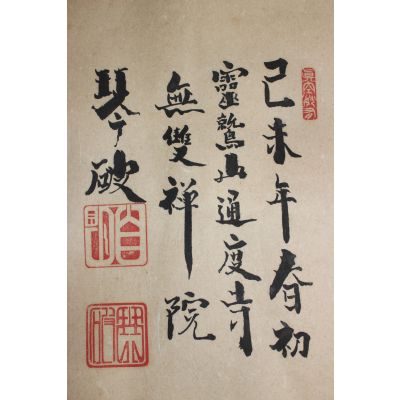 己未年春初
靈鷲山通度寺
無雙禅院
琴